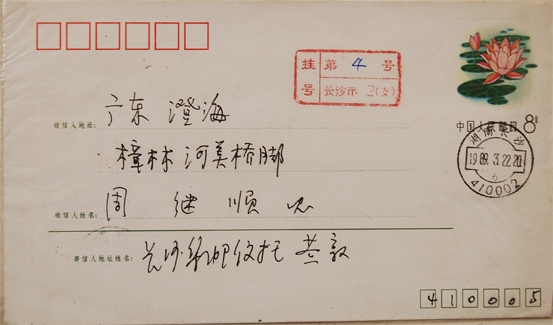 挂号 第 4 号
长沙市 2(支)
中国人民邮政 8分
湖南长沙
1989.3.22.20
6
410002
收信人地址: 广东 澄海
樟林 河美桥脚
收信人姓名: 周 继 顺
寄信人地址姓名: 长沙
410005